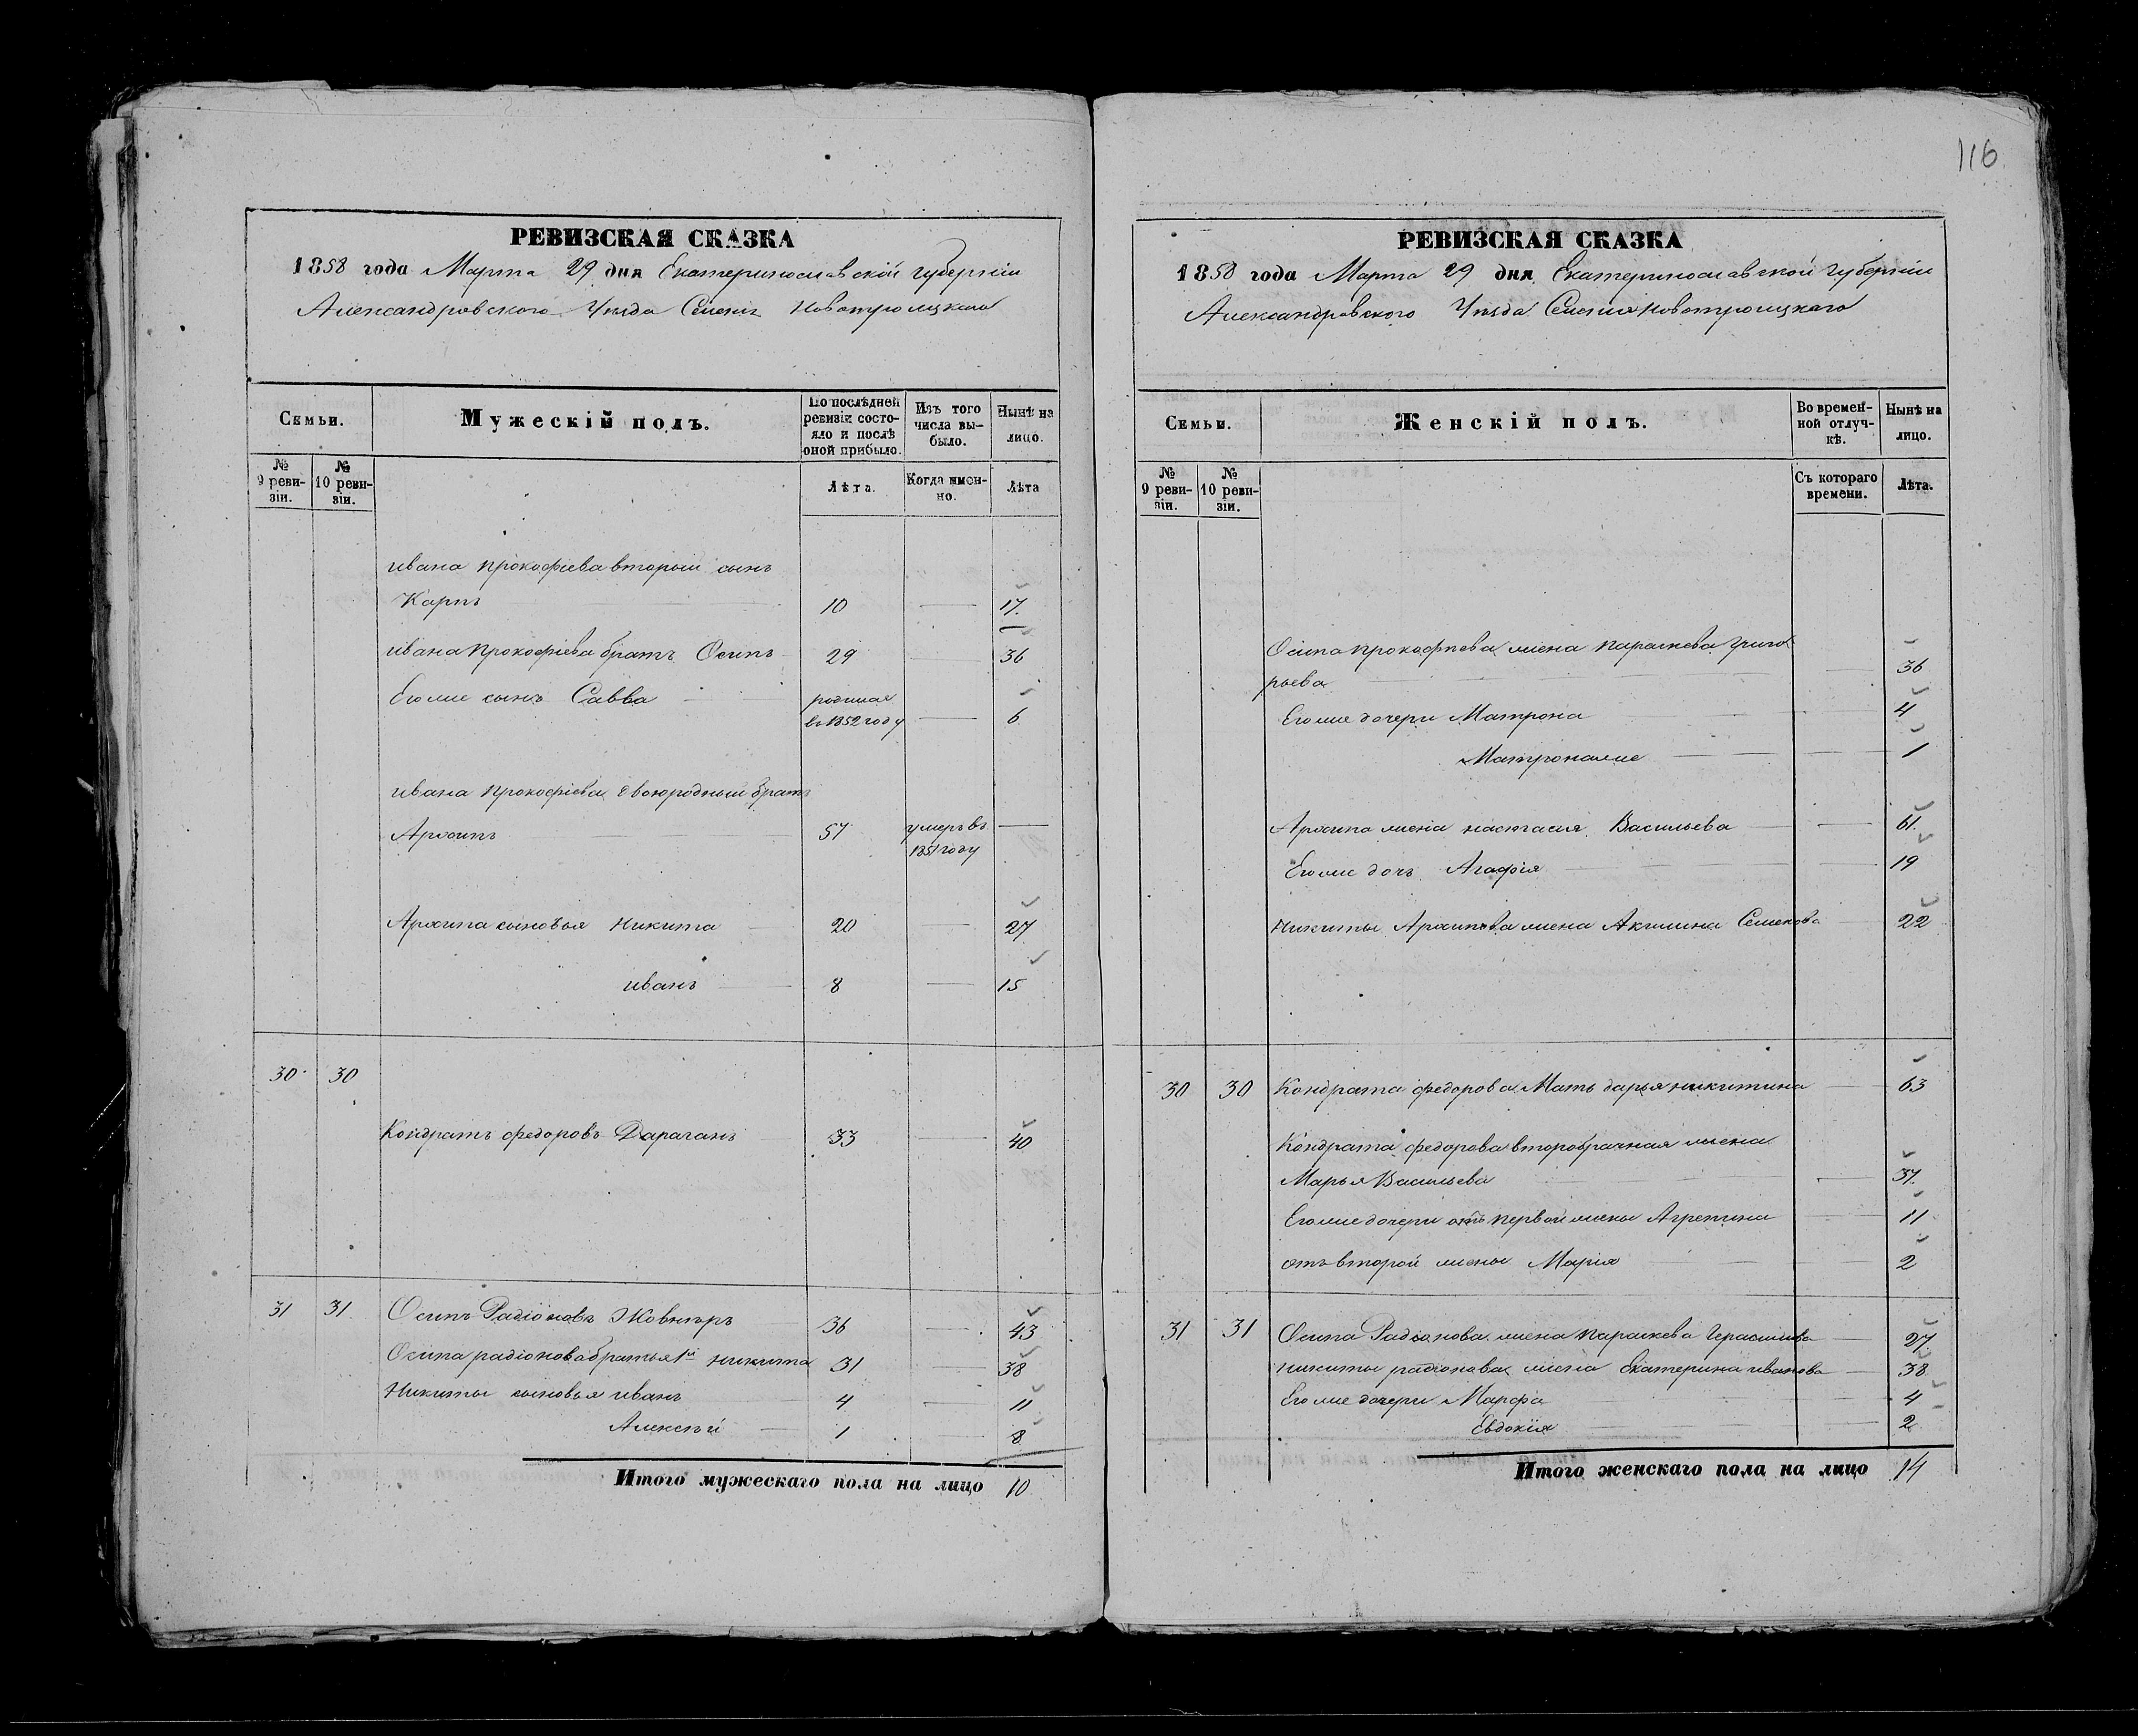 116
РЕВИЗСКАЯ СКАЗКА
1858 года Марта 29 дня Екатеринославской губернiи
Александровского Уѣзда Селенiя Новотроицкаго
Семьи.
Мужескiй полъ.
По послѣдней ревизiи состояло и послѣ оной прибыло.
Изъ того числа выбыло.
Нынѣ на лицо.
№ 9 ревизiи.
№ 10 ревизiи.
Лѣта.
Когда именно.
Лѣта
ивана Прокофiева вторый сынъ
Карпъ 10 — 17
ивана Прокофiева братъ Осипъ 29 — 36
Его же сынъ Савва родился въ 1852 году — 6
ивана Прокофiева двоюродный братъ
Архипъ 57 умеръ въ 1851 году —
Архипа сыновья Никита 20 — 27
иванъ 8 — 15
30 30
Кондратъ федоровъ Дараганъ 33 — 40
31 31 Осипъ Радiоновъ Жовниръ 36 — 43
Осипа радiонова братья 1й никита 31 — 38
Никиты сыновья иванъ 4 — 11
Алексѣй 1 — 8
Итого мужескаго пола на лицо 10
РЕВИЗСКАЯ СКАЗКА
1858 года Марта 29 дня Екатеринославской губернiи
Александровского Уѣзда Селенiя Новотроицкаго
Семьи.
Женскiй полъ.
Во временной отлучкѣ.
Нынѣ на лицо.
№ 9 ревизiи.
№ 10 ревизiи.
Съ котораго времени.
Лѣта.
Осипа прокофьева жена параскева григо
рьева — 36
Его же дочери Матрона — 4
Матрона же — 1
Архипа жена настасiя Васильева — 61
Его же дочь Агафiя — 19
Никиты Архипова жена Акилина Семенова — 22
30 30 Кондрата федорова Мать дарья никитина — 63
Кондрата федорова второбрачная жена
Марья Васильева — 37
Его же дочери отъ первой жены Агрепина — 11
отъ второй жены Марiя — 2
31 31 Осипа Радiонова жена параскева Герасимова — 27
никиты радiонова жена Екатерина иванова — 38
Его же дочери Марфа — 4
Евдокiя — 2
Итого женскаго пола на лицо 14